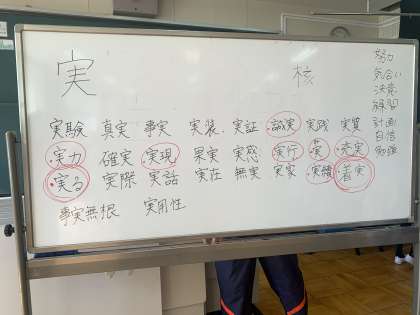 実 核
実験 真実 事実 実装 実証 誠実 実践 実質
実力 確実 実現 果実 実感 実行 実 充実
実る 実際 実話 実在 無実 実家 実績 着実
事実無根 実用性
努力
気合い
決意
練習
計画
自信
勉強